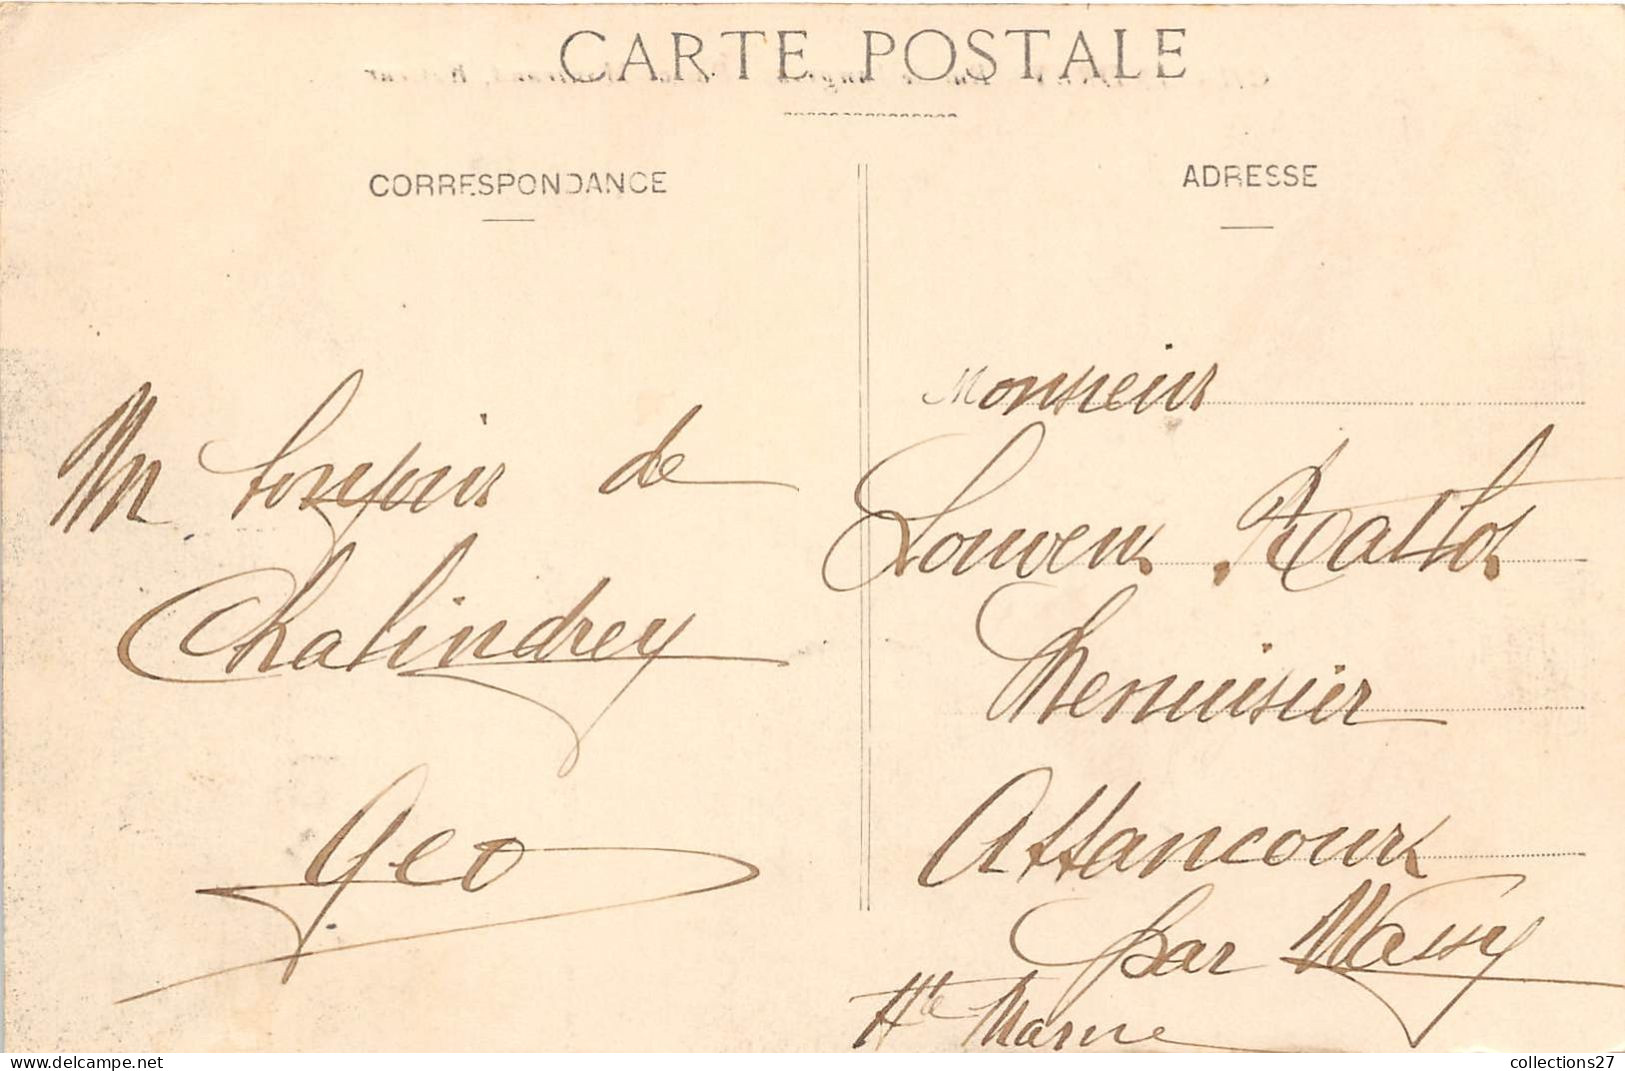 CARTE POSTALE
CORRESPONDANCE
ADRESSE
Un bonjour de
Chalindrey
Geo
Monsieur
Louveux
Menuisier
Attancourt
par Wassy
Hte Marne
www.delcampe.net
collections27